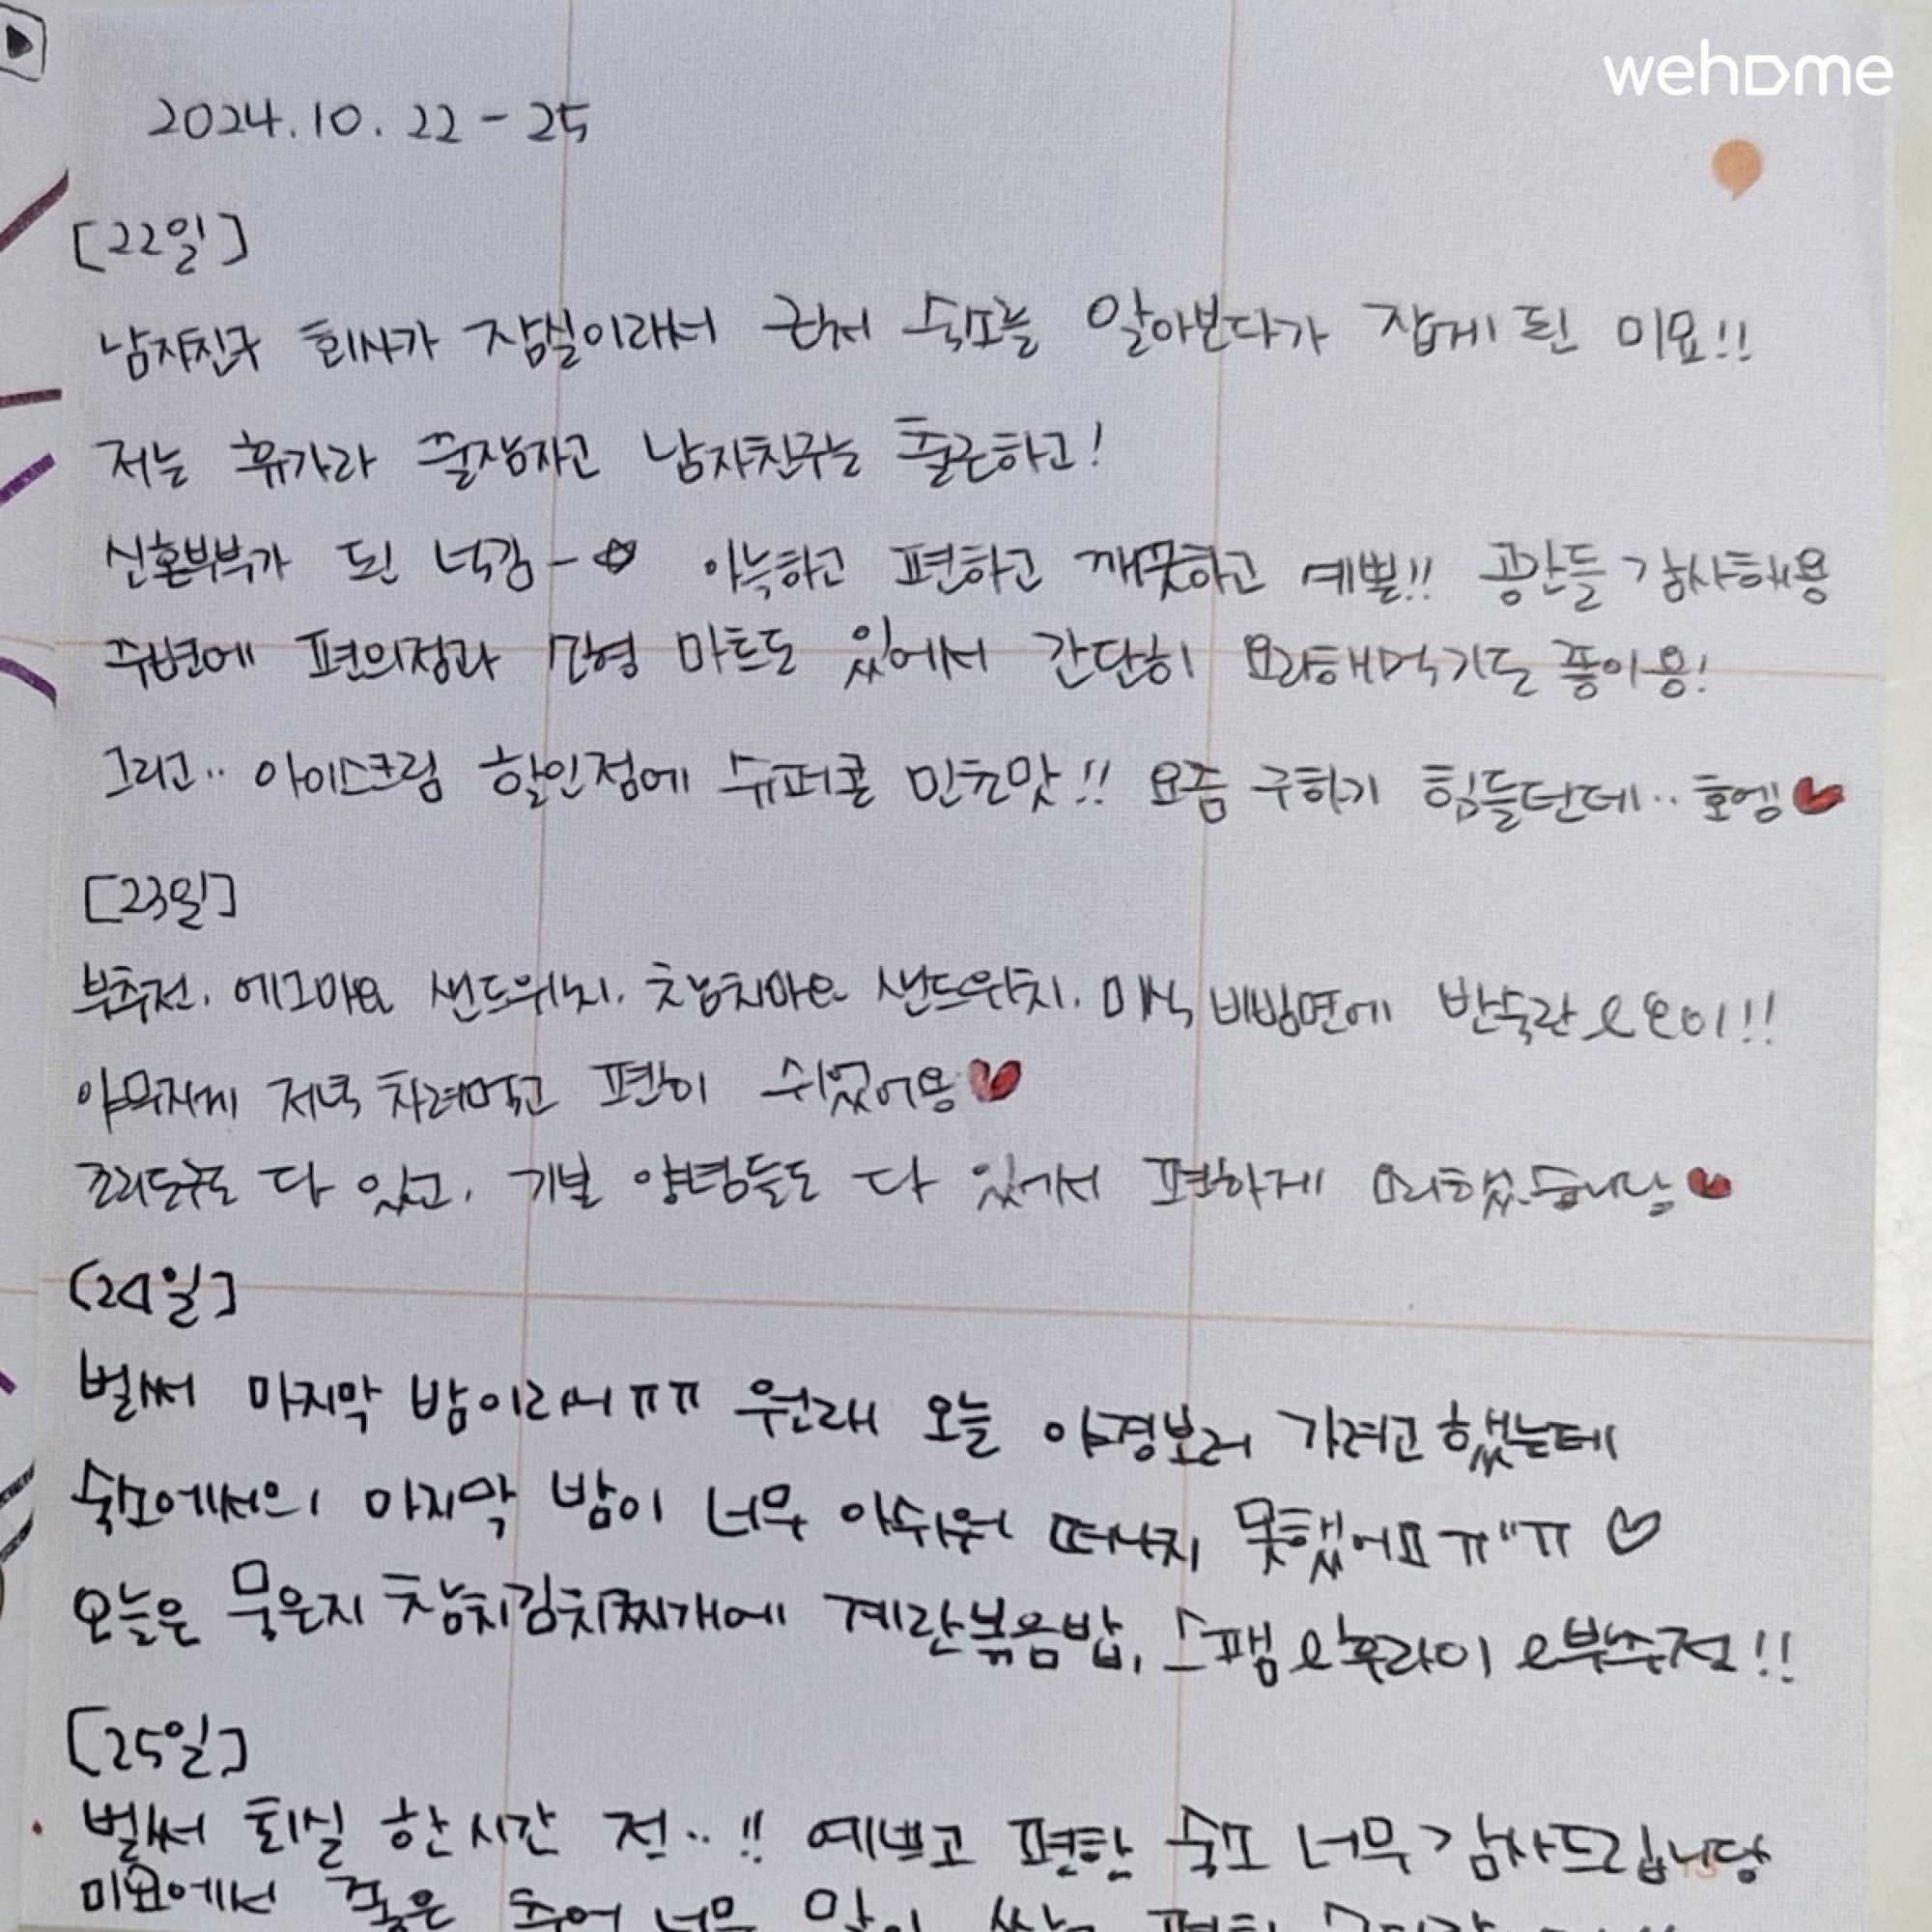 wehome
2024.10.22-25
[22일]
남자친구 회사가 잠실이라서 근처 숙소를 알아보다가 잡게 된 미묘!!
저는 휴가라 쭐잠자고 남자친구는 출근하고!
신혼부부가 된 넉김- 아늑하고 편하고 깨끗하고 예쁜!! 공간들 감사해용
주변에 편의점과 대형 마트도 있어서 간단히 요리해먹기도 좋아용!
그리고.. 아이스크림 할인점에 슈퍼콘 민초맛!! 요즘 구하기 힘들던데.. 호엥
[23일]
부추전, 에그마요 샌드위치, 참치마요 샌드위치, 미식 비빔면에 반숙란 & 오이!!
야무지게 저녁 차려먹고 편히 쉬었어용
조리도구도 다 있고, 기본 양념들도 다 있어서 편하게 요리했습니당
[24일]
벌써 마지막 밤이라서ㅠㅠ 원래 오늘 야경보러 가려고 했는데
숙소에서의 마지막 밤이 너무 아쉬워 떠나지 못했어요 ㅠ"ㅠ ♡
오늘은 묵은지 참치김치찌개에 계란볶음밥, 스팸 & 후라이 & 부추전!!
[25일]
벌써 퇴실 한시간 전..!! 예쁘고 편한 숙소 너무 감사드립니당
미묘에서 좋은 추억 너무 많이 쌓고 편히